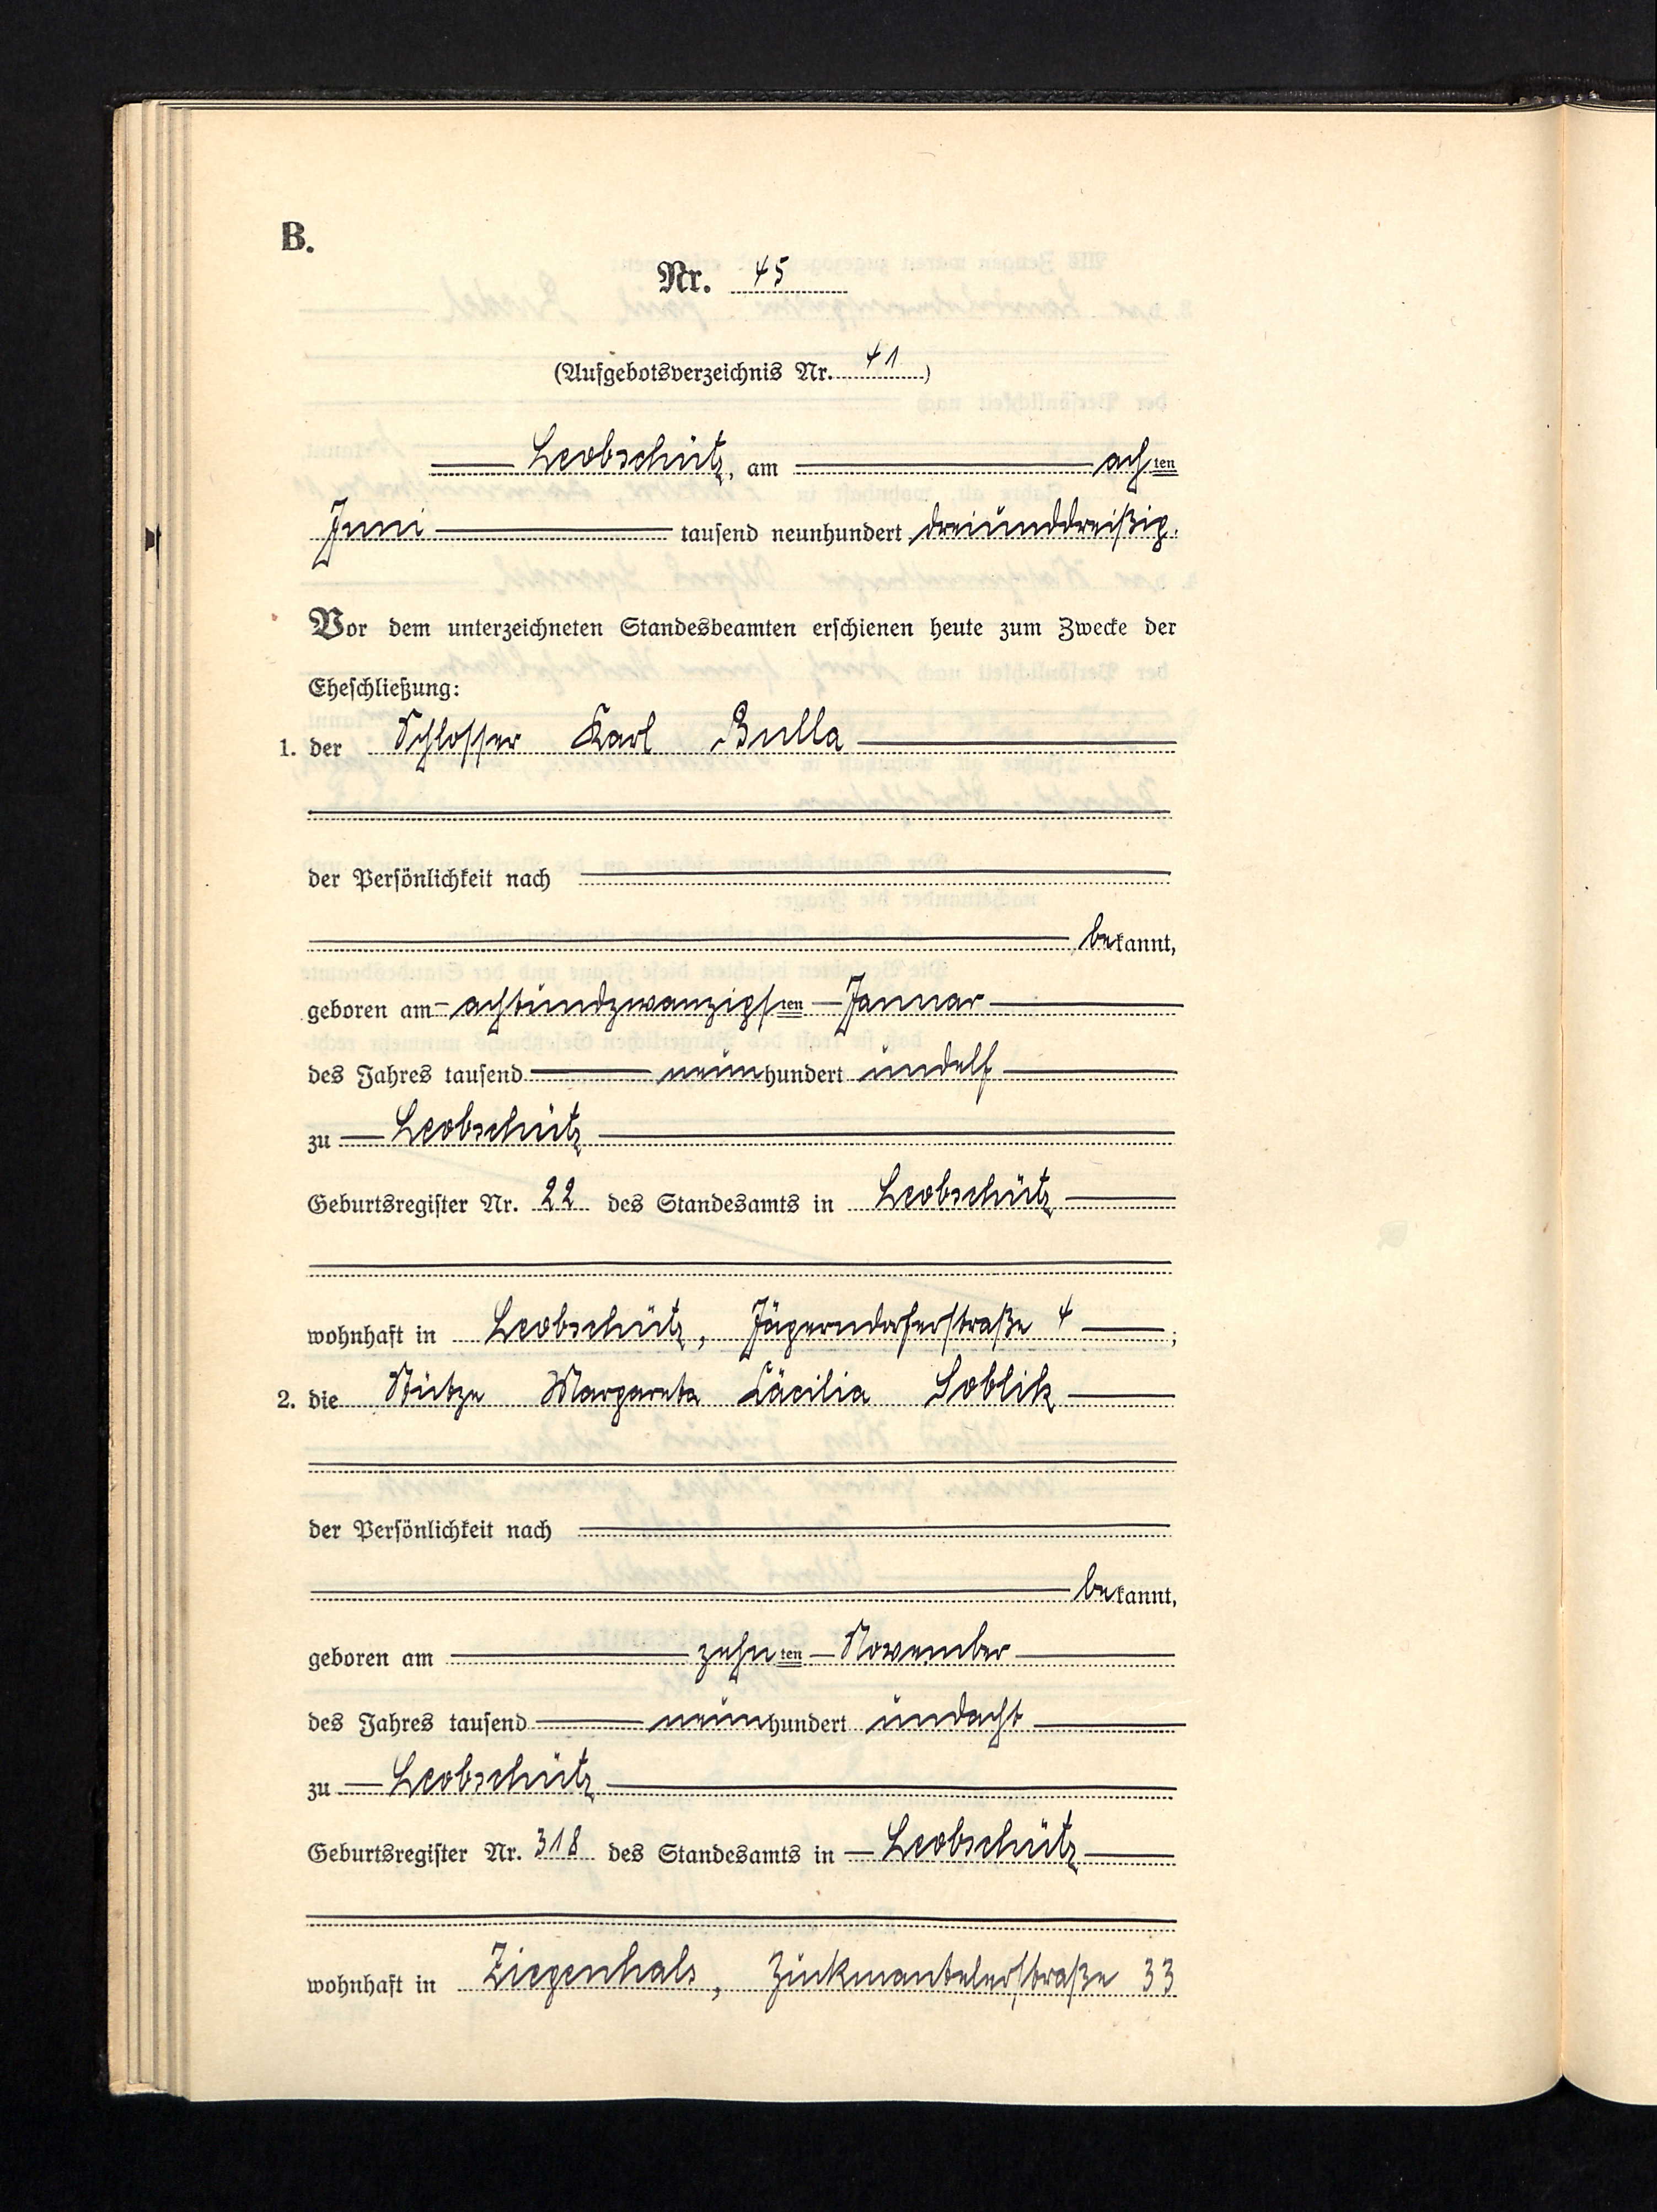 B.
Nr. 45
(Aufgebotsverzeichnis Nr. 41)
Leobschütz, am achten
Juni tausend neunhundert dreiunddreißig.
Vor dem unterzeichneten Standesbeamten erschienen heute zum Zwecke der
Eheschließung:
1. der Schlosser Karl Bulla
der Persönlichkeit nach
bekannt,
geboren am achtundzwanzigsten Januar
des Jahres tausend neunhundert undelf
zu Leobschütz
Geburtsregister Nr. 22 des Standesamts in Leobschütz
wohnhaft in Leobschütz, Jägerndorferstraße 4;
2. die Stütze Margareta Cäcilia Soblik
der Persönlichkeit nach
bekannt,
geboren am zehnten November
des Jahres tausend neunhundert undacht
zu Leobschütz
Geburtsregister Nr. 318 des Standesamts in Leobschütz
wohnhaft in Ziegenhals, Zuckmantelerstraße 33